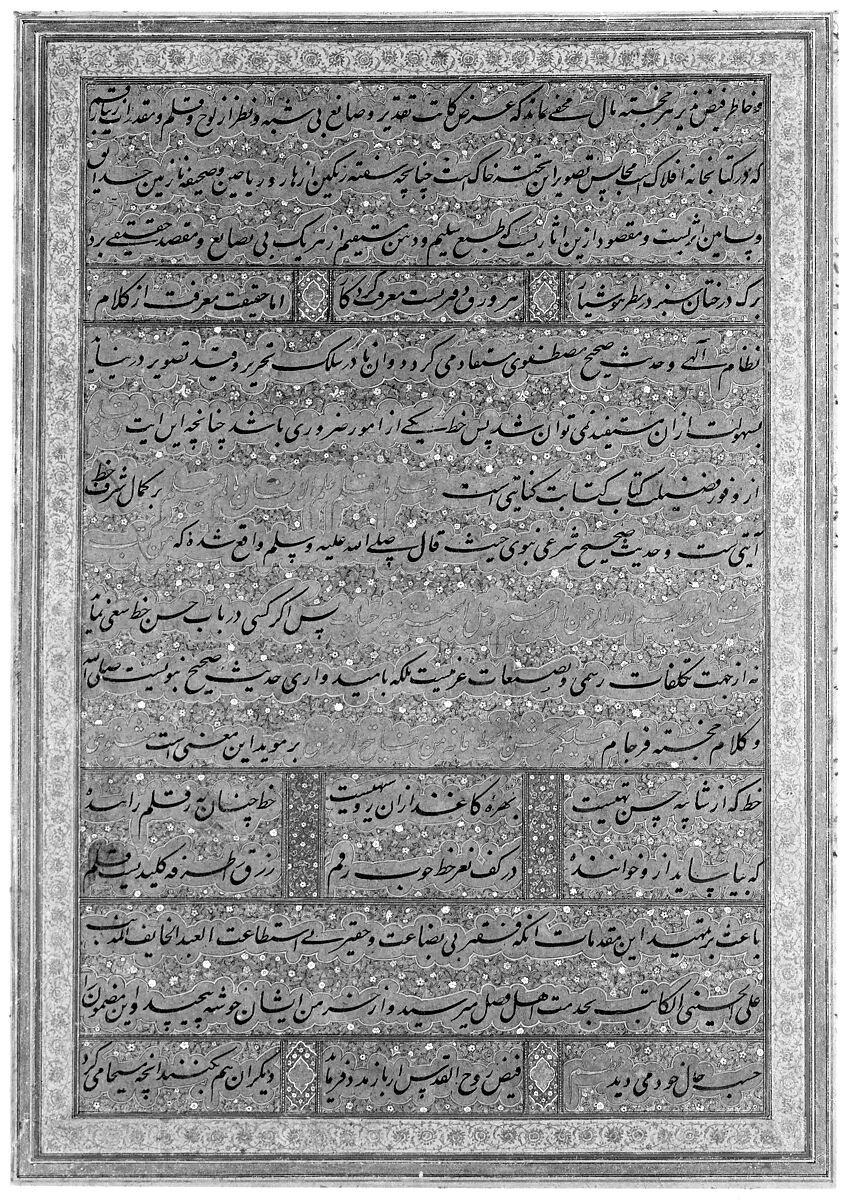 و خاطر فیض پذیر هر خجسته مال مخفی نماند که غرض کاتب تقدیر و صانع بی شبه و نظیر از لوح و قلم و مقدار
که در کتابخانه افلاک است مجالس تصویر این تخته خاک است چنانچه سفینه رنگین ازهار و ریاحین و صحیفه نازنین
و بساتین اثریست و مقصود ازین آثار نیست که طبع سلیم و ذهن مستقیم از هر یک پی بصانع و مقصد حقیقی برد
برگ درختان سبز در نظر هوشیار هر ورق دفتریست معرفت کردگار اما حقیقت معرفت از کلام
نظام الهی و حدیث صحیح مصطفوی مستفاد می گردد و آن تا در سلک تحریر و قید تصویر در نیاید
بسهولت از آن مستفید نمی توان شد پس خط یکی از امور ضروری باشد چنانچه این آیت
از وفور فضیلت کتاب کتابت کنایتی است علم بالقلم علم الانسان ما لم یعلم بر کمال شرف خط
آیتی است و حدیث صحیح شرعی نبوی حیث قال صلی الله علیه و سلم واقع شده که
بسم الله الرحمن الرحیم دخل الجنة بغیر حساب پس اگر کسی در باب حسن خط سعی نماید
نه از جهت تکلفات رسمی و تصنعات عرفیست بلکه بامیدواری حدیث صحیح نبویست صلی الله
و کلام خجسته فرجام علیکم بحسن الخط فانه من مفاتیح الرزق بر موید این معنی است
خط که از شایبه حسن تهیست بهره کاغذ از آن روسیهیست خط چنان به ز قلم راننده
که بیاساید از و خواننده در کف نغز خط خوب رقم رزق را طرفه کلیدیست قلم
باعث بر تمهید این مقدمات آنکه فقیر بی بضاعت و حقیر بی استطاعت العبد الخایف المذنب
علی الحسینی الکاتب بخدمت اهل فضل میرسید و از خرمن ایشان خوشه میچید و این مضمون را
حسب حال خود می دید فیض روح القدس ار باز مدد فرماید دیگران هم بکنند آنچه مسیحا می کرد